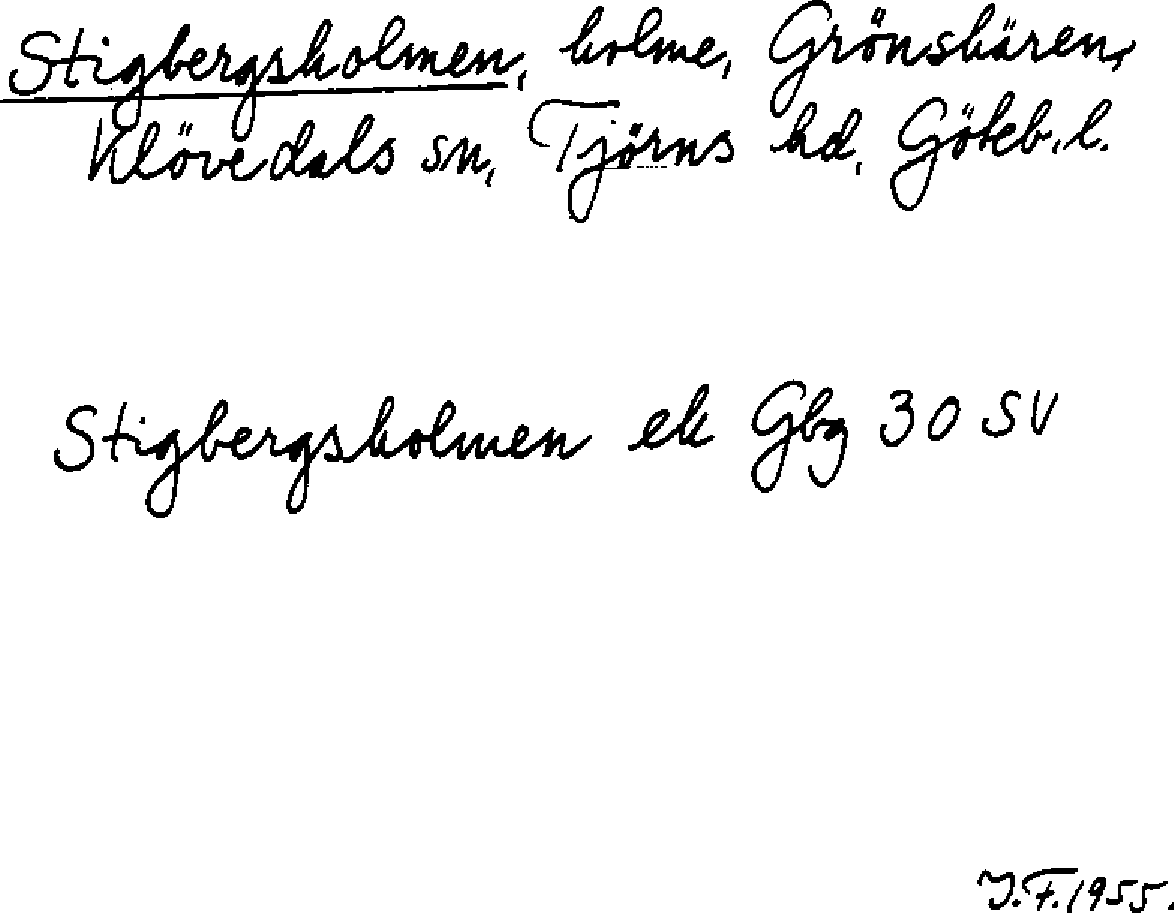 Stigbergsholmen, holme, Grönskären,
Klövedals sn, Tjörns hd, Göteb. l.
Stigbergsholmen ek Gbg 30 SV
J.F. 1955.